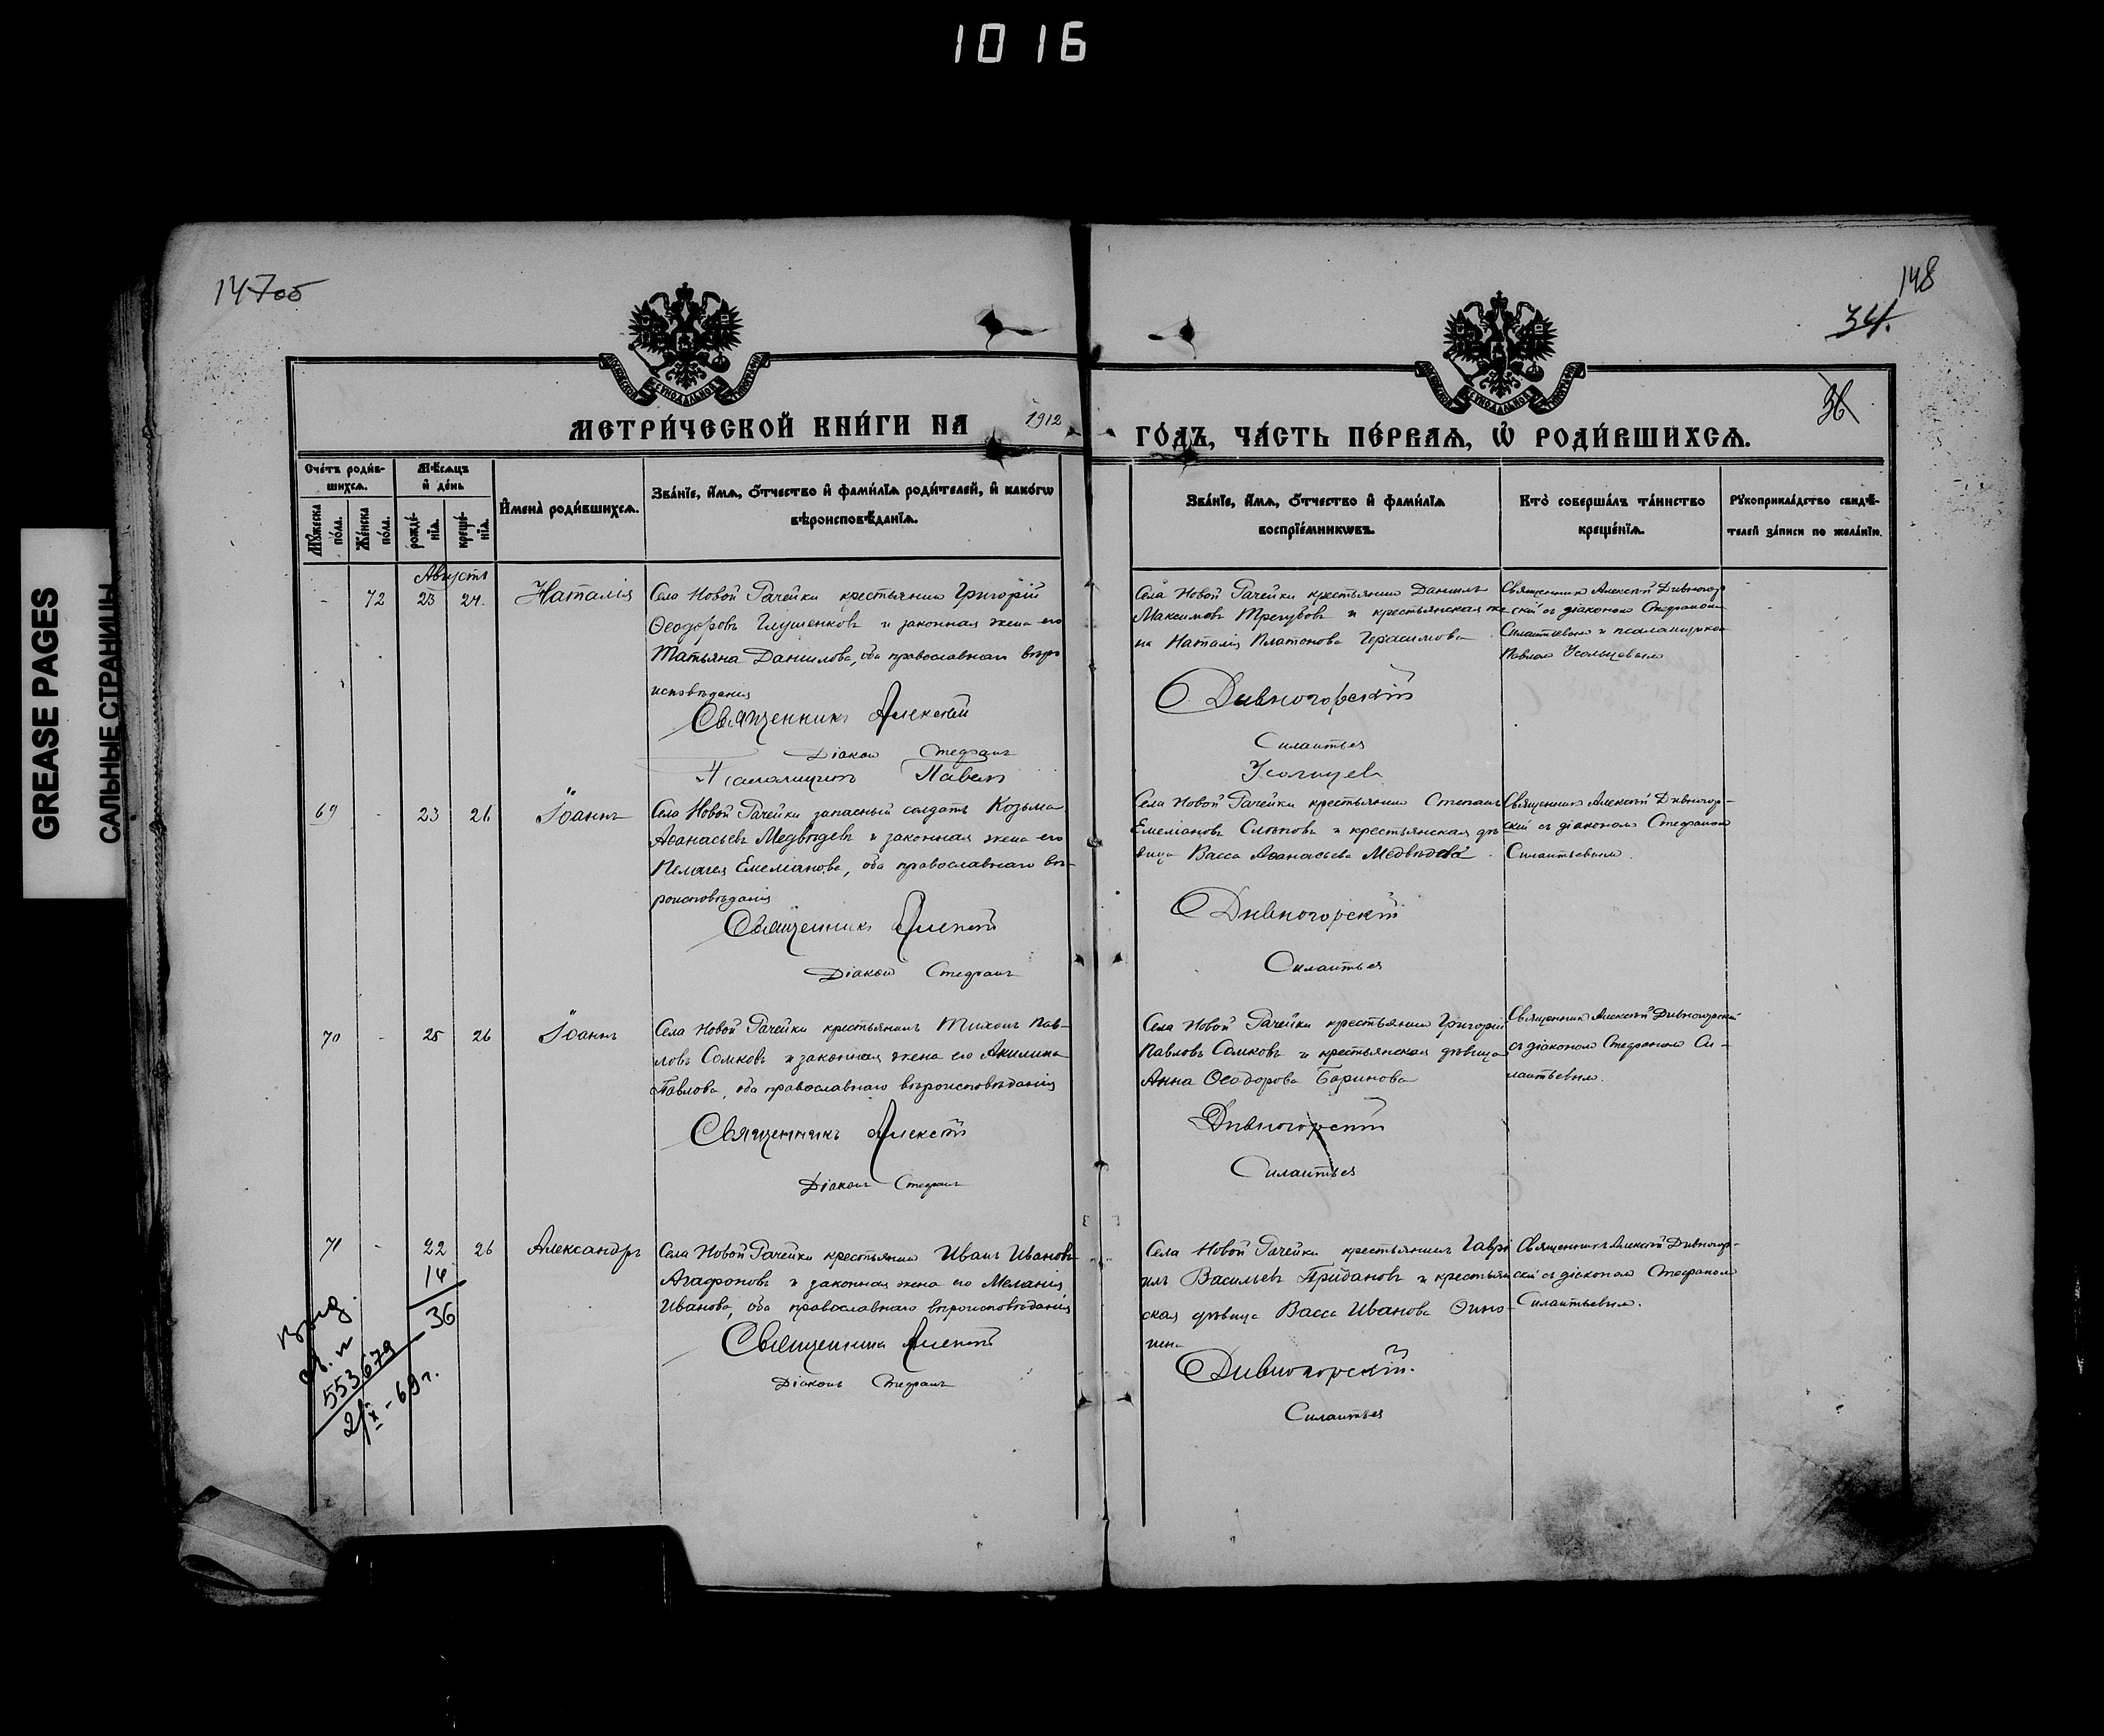 1016
GREASE PAGES
САЛЬНЫЕ СТРАНИЦЫ
147об
148
34.
36
МЕТРИ́ЧЕСКОЙ КНИ́ГИ НА 1912 ГО́ДЪ, ЧА́СТЬ ПЕ́РВАѦ, Ѡ҆ РОДИ́ВШИХСѦ.
Сче́тъ роди́в-
шихсѧ.
Мѣ́сѧцъ
и҆ де́нь
Мꙋ́жеска
по́ла.
Же́нска
по́ла.
рожде́-
нїѧ.
креще́-
нїѧ.
И҆мена̀ роди́вшихсѧ.
Зва́нїе, и҆́мѧ, ѻ҆́тчество и҆ фами́лїѧ роди́телей, и҆ како́гѡ
вѣроисповѣ́данїѧ.
Зва́нїе, и҆́мѧ, ѻ҆́тчество и҆ фами́лїѧ
воспрїе́мникѡвъ.
Кто̀ соверша́лъ та́инство
креще́нїѧ.
Рꙋкоприкла́дство свидѣ́-
телей за́писи по жела́нїю.
Августъ
- 72 23 24. Наталія
Села Новой Рачейки крестьянинъ Григорій
Ѳеодоровъ Глушенковъ и законная жена его
Татьяна Данилова, оба православнаго вѣро
исповѣданія
Священникъ Алексѣй
Діаконъ Стефанъ
Псаломщикъ Павелъ
Села Новой Рачейки крестьянинъ Даніилъ
Максимовъ Трегубовъ и крестьянская же
на Наталія Платонова Герасимова
Дивногорскій
Силантьев
Усольцев
Священникъ Алексѣй Дивногор
скій съ діакономъ Стефаномъ
Силантьевымъ и псаломщикомъ
Павломъ Усольцевымъ
69 - 23 26 Іоаннъ
Села Новой Рачейки запасный солдатъ Козьма
Аѳанасьевъ Медвѣдевъ и законная жена его
Пелагея Емеліанова, оба православнаго вѣ-
роисповѣданія
Священникъ Алексѣй
Діаконъ Стефанъ
Села Новой Рачейки крестьянинъ Степанъ
Емеліановъ Слѣповъ и крестьянская дѣ
вица Васса Аѳанасьева Медвѣдева
Дивногорскій
Силантьев
Священникъ Алексѣй Дивногор-
скій съ діакономъ Стефаномъ
Силантьевымъ.
70 - 25 26 Іоаннъ
Села Новой Рачейки крестьянинъ Тихонъ Пав-
ловъ Сомковъ и законная жена его Акилина
Павлова, оба православнаго вѣроисповѣданія
Священникъ Алексѣй
Діаконъ Стефанъ
Села Новой Рачейки крестьянинъ Григорій
Павловъ Сомковъ и крестьянская дѣвица
Анна Ѳеодорова Баринова
Дивногорскій
Силантьев
Священникъ Алексѣй Дивногорскій
съ діакономъ Стефаномъ Си-
лантьевымъ.
71 - 22 26 Александръ
14
36
553679
2/X - 69 г.
Села Новой Рачейки крестьянинъ Иванъ Ивановъ
Агафоновъ и законная жена его Меланія
Иванова, оба православнаго вѣроисповѣданія
Священникъ Алексѣй
Діаконъ Стефанъ
Села Новой Рачейки крестьянинъ Гаврі
илъ Васильевъ Придановъ и крестьян
ская дѣвица Васса Иванова
Дивногорскій.
Силантьев
Священникъ Алексѣй Дивногор-
скій съ діакономъ Стефаномъ
Силантьевымъ.